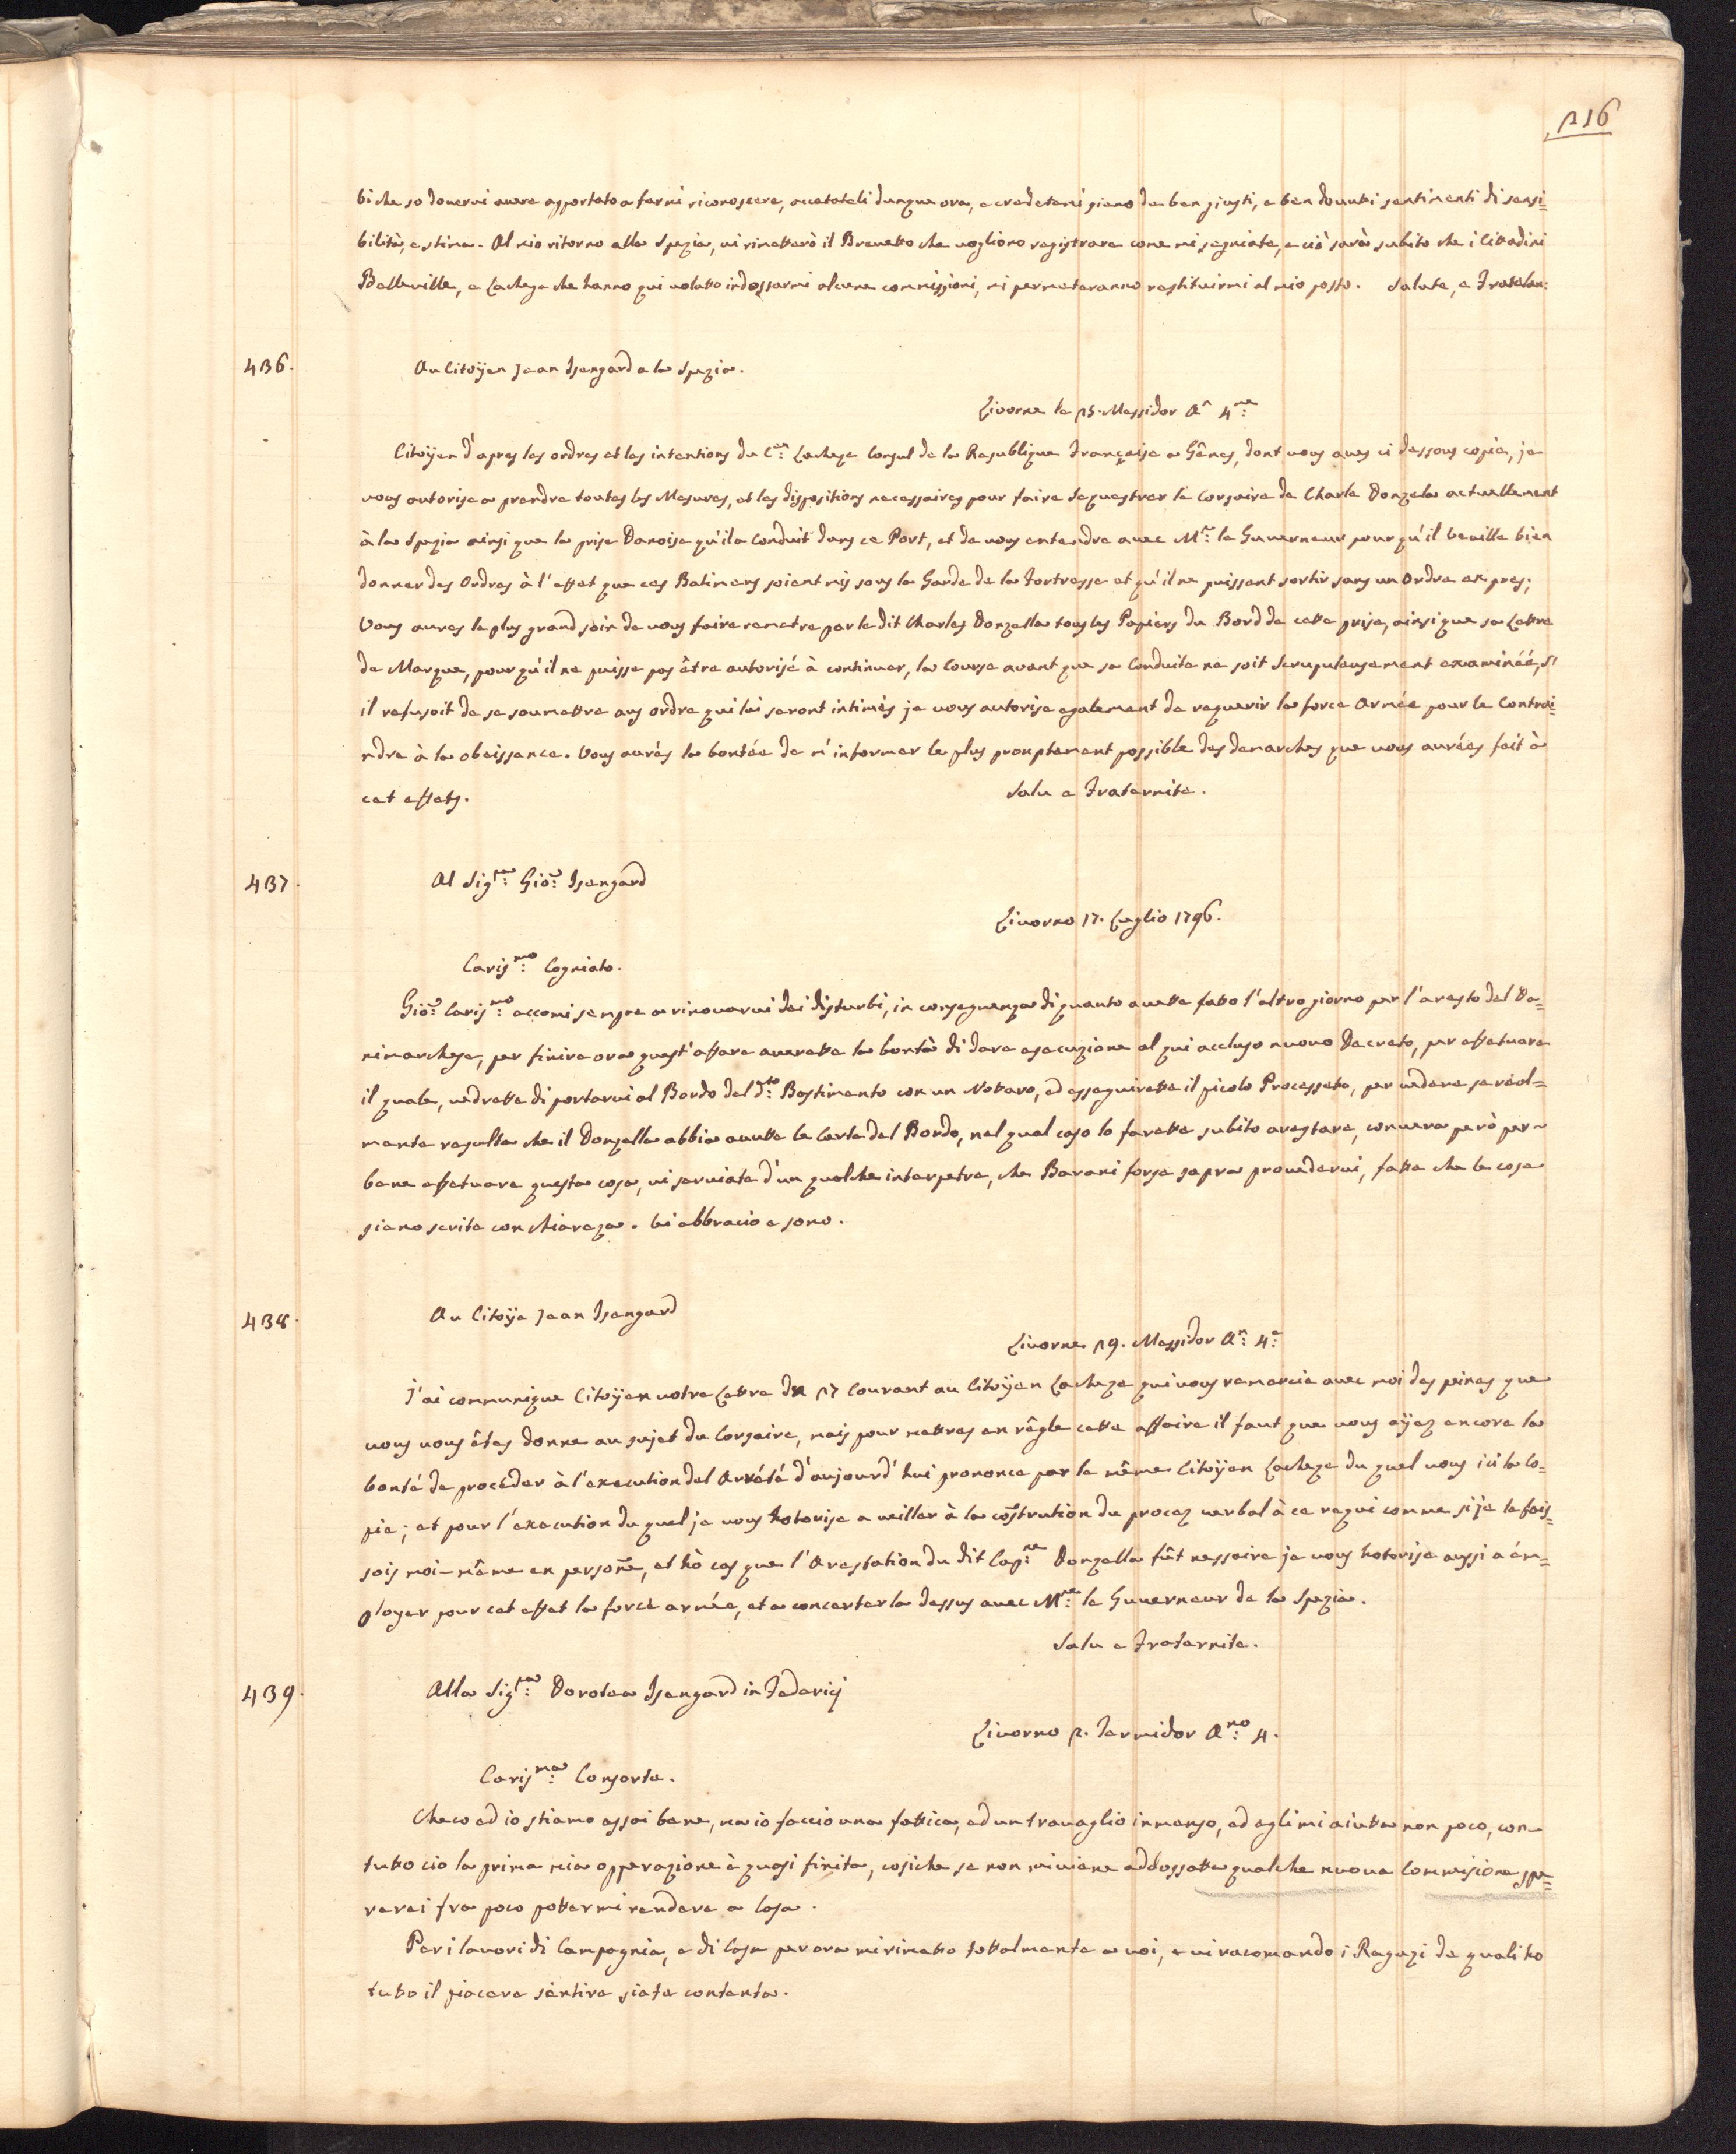 216
bi che so dovervi avere apportato a farmi riconoscere, accetateli dunque ora, e credetemi pieno de ben giusti, e ben dovuti sentimenti di sensi=
bilità, e stima. Al mio ritorno alla Spezia, vi rimetterò il Brevetto che vogliono registrare come mi segniate, e ciò sarà subito che i Citadini
Belleville, e Lacheze che hanno qui voluto indossarmi alcune commissioni, mi permeteranno restituirmi al mio posto. Salute, e Fratelan:
436. Au Citoÿen Jean Isengard a la Spezia.
Livorne le 25. Messidor An 4me:
Citoÿen d'apres les ordres et les intentions du Cen: Lacheze Consul de la Republique Françaises a Gênes, dont vous aves ci dessous copie, je
vous autorise a prendre toutes les Mesures, et les dispositions necessaires pour faire sequestrer le Corsaire de Charle Donzela actuellement
à la Spezia ainsi que la prise Danoise qu'il a conduit dans ce Port, et de vous entendre avec Mr: le Guverneur pour qu'il veuille bien
donner des Ordres à l'effet que ces Batimens soient mis sous la Garde de la Fortresse et qu'il ne puissent sortir sans un Ordre expres;
Vous aures le plus grand soin de vous faire remetre par le dit Charles Donzella tous les Papiers du Bord de cette prise, ainsi que sa Lettre
de Marque, pour qu'il ne puisse pas être autorisé à continuer, la Course avant que sa Conduite ne soit scrupuleusement examinéé, s'
il refusoit de se soumettre aus ordre qui lui seront intimés je vous autorise egalement de requerir la force Armée pour le Contrai=
ndre à la obeissance. Vous aurès la bontée de m'informer le plus promptement possible des demarches que vous aurées fait à
cet effets. Salu e Fraternite.
437. Al Sigre: Gio: Isengard
Livorno 17. Luglio 1796.
Carismo: Cogniato.
Gio: Carismo: eccomi sempre a rinovarvi dei disturbi, in conseguenza di quanto avette fatto l'altro giorno per l'aresto del Da=
nimarchese, per finire ora quest'affare averette la bontà di dare esecuzione al qui accluso nuovo Decreto, per effetuare
il quale, vedrette di portarvi al Bordo del dto: Bastimento con un Nottaro, ed esseguirette il picolo Processetto, per vedere se réal=
mente resulta che il Donzella abbia avutte le Carte del Bordo, nel qual caso lo farette subito arestare, converrà però per
bene effetuare questa cosa, vi serviate d'un qualche interpetre, che Barani forse sapra provedervi, fatte che le cose
siano scrite con chiareza. Vi abbracio e sono.
438. Au Citoÿe Jean Isengard
Livorne 29. Messidor An: 4e:
J'ai communique Citoÿen votre Lettre du 27 Courant au Citoÿen Lacheze qui vous remercie avec moi des peines que
vous vous êtes donne au sujet du Corsaire, mais pour mettres en règle cette affaire il faut que vous aÿez encore la
bonté de procéder à l'execution del Arrété d'aujourd'hui prononce par le même Citoÿen Lacheze du quel vous ici la Co=
pie; et pour l'execution du quel je vous hotorise a veiller à la cõstrution du procez verbal à ce requi comme si je le fais=
sois moi-même en persoñe, et hò cas que l'Arestation du dit Capne: Donzella fût nessaire je vous hotorise aussi a ém=
ployer pour cet effet la forcè armée, et a concerter la dessus avec Mre: le Guverneur de la Spezia.
Salu e Fraternite.
439. Alla Sigra: Dorotea Isengard in Federicj
Livorno 2. Termidor Anno: 4.
Carisma: Consorte.
Checo ed io stiamo assai bene, ma io faccio una fattica, ed un travaglio inmenso, ed egli mi aiutta non poco, con
tutto cio la prima mia opperazione è quasi finita, cosiche se non mi viene addossatta qualche nuova Commisione spe=
rerei fra poco pottermi rendere a Casa.
Per i lavori di Campagnia, e di Casa per ora mi rimetto tottalmente a voi, e vi racomando i Ragazi de quali ho
tutto il piacere sentire siate contenta.